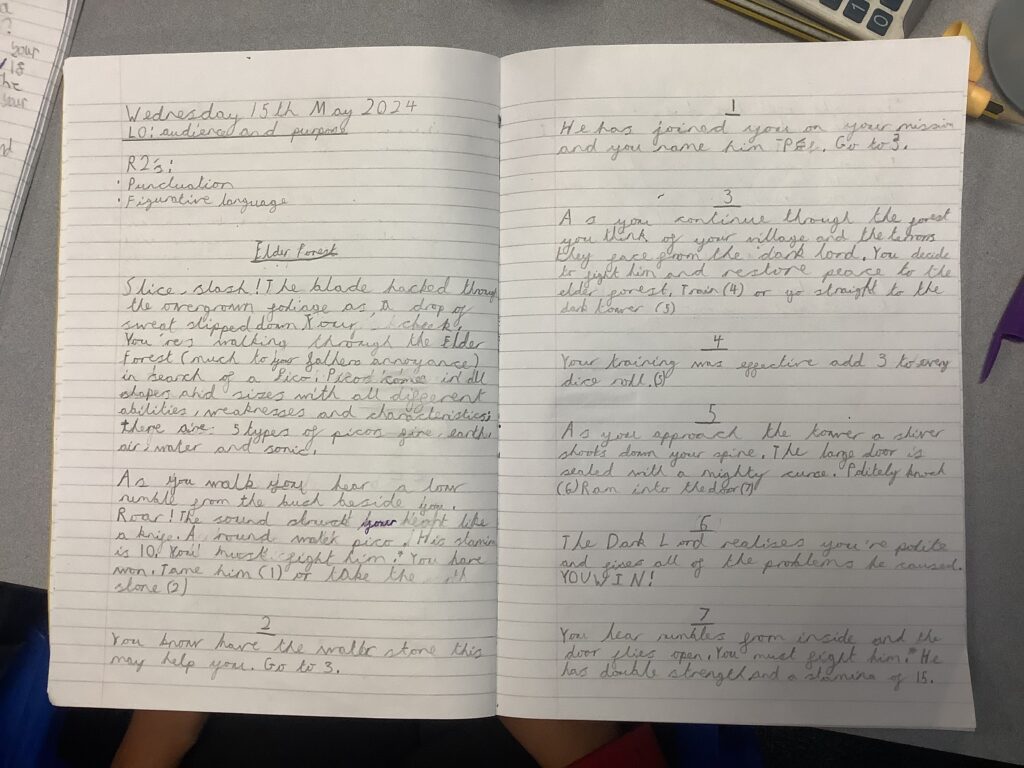 Wednesday 15th May 2024
LO: audience and purpose
R2s:
· Punctuation
· Figurative language
Elder Forest
Slice, slash! The blade hacked through
the overgrown foliage as, A drop of
sweat slipped down your cheek.
You're walking through the Elder
Forest (much to your fathers annoyance)
in search of a Pico; Picos come in all
shapes and sizes with all different
abilities, weaknesses and characteristics;
there are: 5 types of picos fire, earth,
air, water and sonic.
As you walk you hear a low
rumble from the buch beside you.
Roar! The sound struck your heart like
a knife. A round water pico. His stamina
is 10. You must fight him.* You have
won. Tame him (1) or take the
stone (2)
2
You know have the water stone this
may help you. Go to 3.
1
He has joined you on your mission
and you name him. Go to 3.
3
As you continue through the forest
you think of your village and the terrors
they face from the dark lord. You decide
to fight him and restore peace to the
elder forest. Train (4) or go straight to the
dark tower (5)
4
Your training was effective add 3 to every
dice roll. (5)
5
As you approach the tower a shiver
shoots down your spine. The large door is
sealed with a mighty curse. Politely knock
(6) Ram into the door (7)
6
The Dark Lord realises you're polite
and fixes all of the problems he caused.
YOU WIN!
7
You hear rumbles from inside and the
door flies open. You must fight him.* He
has double strength and a stamina of 15.
your
is
the
your
0